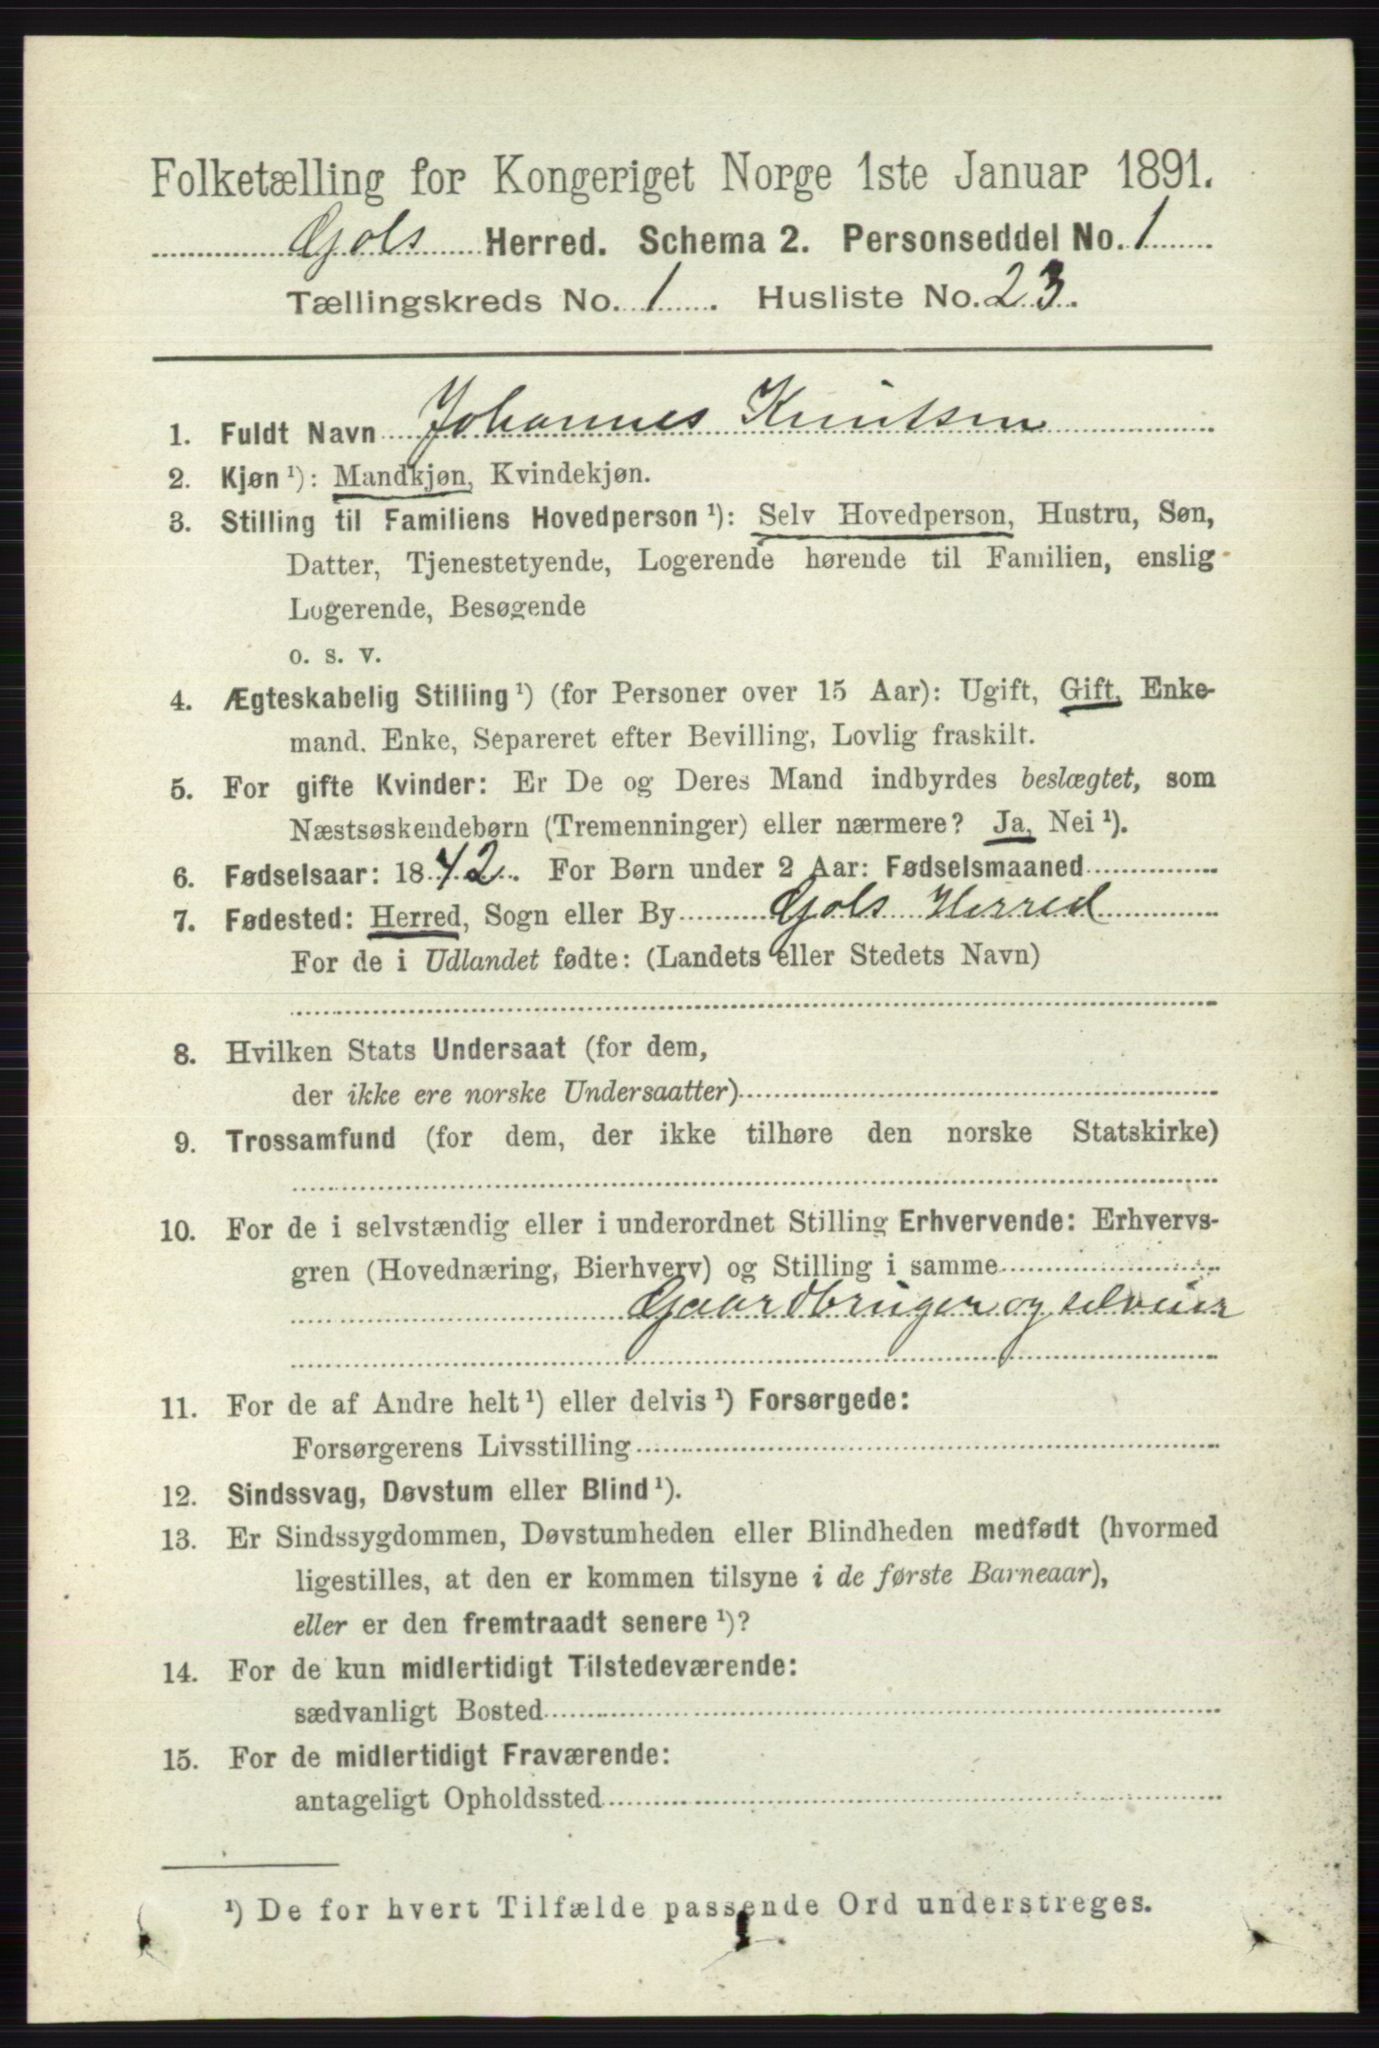 Folketælling for Kongeriget Norge 1ste Januar 1891.
Gols Herred. Schema 2. Personseddel No. 1
Tællingskreds No. 1. Husliste No. 23.
1. Fuldt Navn Johannes Knutsen
2. Kjøn ¹): Mandkjøn, Kvindekjøn.
3. Stilling til Familiens Hovedperson ¹): Selv Hovedperson, Hustru, Søn,
Datter, Tjenestetyende, Logerende hørende til Familien, enslig
Logerende, Besøgende
o. s. v.
4. Ægteskabelig Stilling ¹) (for Personer over 15 Aar): Ugift, Gift, Enke-
mand, Enke, Separeret efter Bevilling, Lovlig fraskilt.
5. For gifte Kvinder: Er De og Deres Mand indbyrdes beslægtet, som
Næstsøskendebørn (Tremenninger) eller nærmere? Ja, Nei ¹).
6. Fødselsaar: 1842. For Børn under 2 Aar: Fødselsmaaned
7. Fødested: Herred, Sogn eller By Gols Herred
For de i Udlandet fødte: (Landets eller Stedets Navn)
8. Hvilken Stats Undersaat (for dem,
der ikke ere norske Undersaatter)
9. Trossamfund (for dem, der ikke tilhøre den norske Statskirke)
10. For de i selvstændig eller i underordnet Stilling Erhvervende: Erhvervs-
gren (Hovednæring, Bierhverv) og Stilling i samme
Gaardbruger og selveier
11. For de af Andre helt ¹) eller delvis ¹) Forsørgede:
Forsørgerens Livsstilling
12. Sindssvag, Døvstum eller Blind ¹).
13. Er Sindssygdommen, Døvstumheden eller Blindheden medfødt (hvormed
ligestilles, at den er kommen tilsyne i de første Barneaar),
eller er den fremtraadt senere ¹)?
14. For de kun midlertidigt Tilstedeværende:
sædvanligt Bosted
15. For de midlertidigt Fraværende:
antageligt Opholdssted
¹) De for hvert Tilfælde passende Ord understreges.